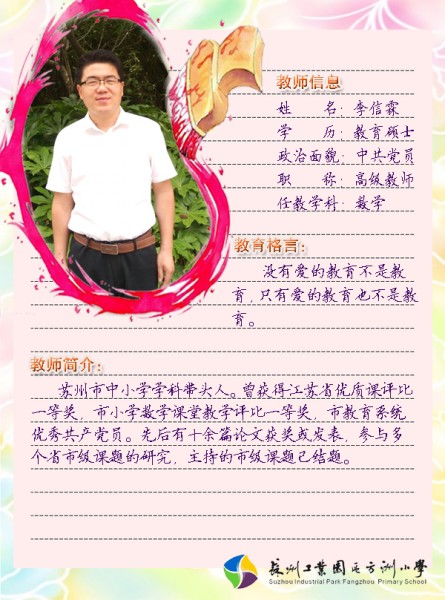 教师信息
姓 名：李信霖
学 历：教育硕士
政治面貌：中共党员
职 称：高级教师
任教学科：数学
教育格言：
没有爱的教育不是教
育，只有爱的教育也不是教
育。
教师简介：
苏州市中小学学科带头人。曾获得江苏省优质课评比
一等奖，市小学数学课堂教学评比一等奖，市教育系统
优秀共产党员。先后有十余篇论文获奖或发表，参与多
个省市级课题的研究，主持的市级课题已结题。
苏州工业园区方洲小学
Suzhou Industrial Park Fangzhou Primary School